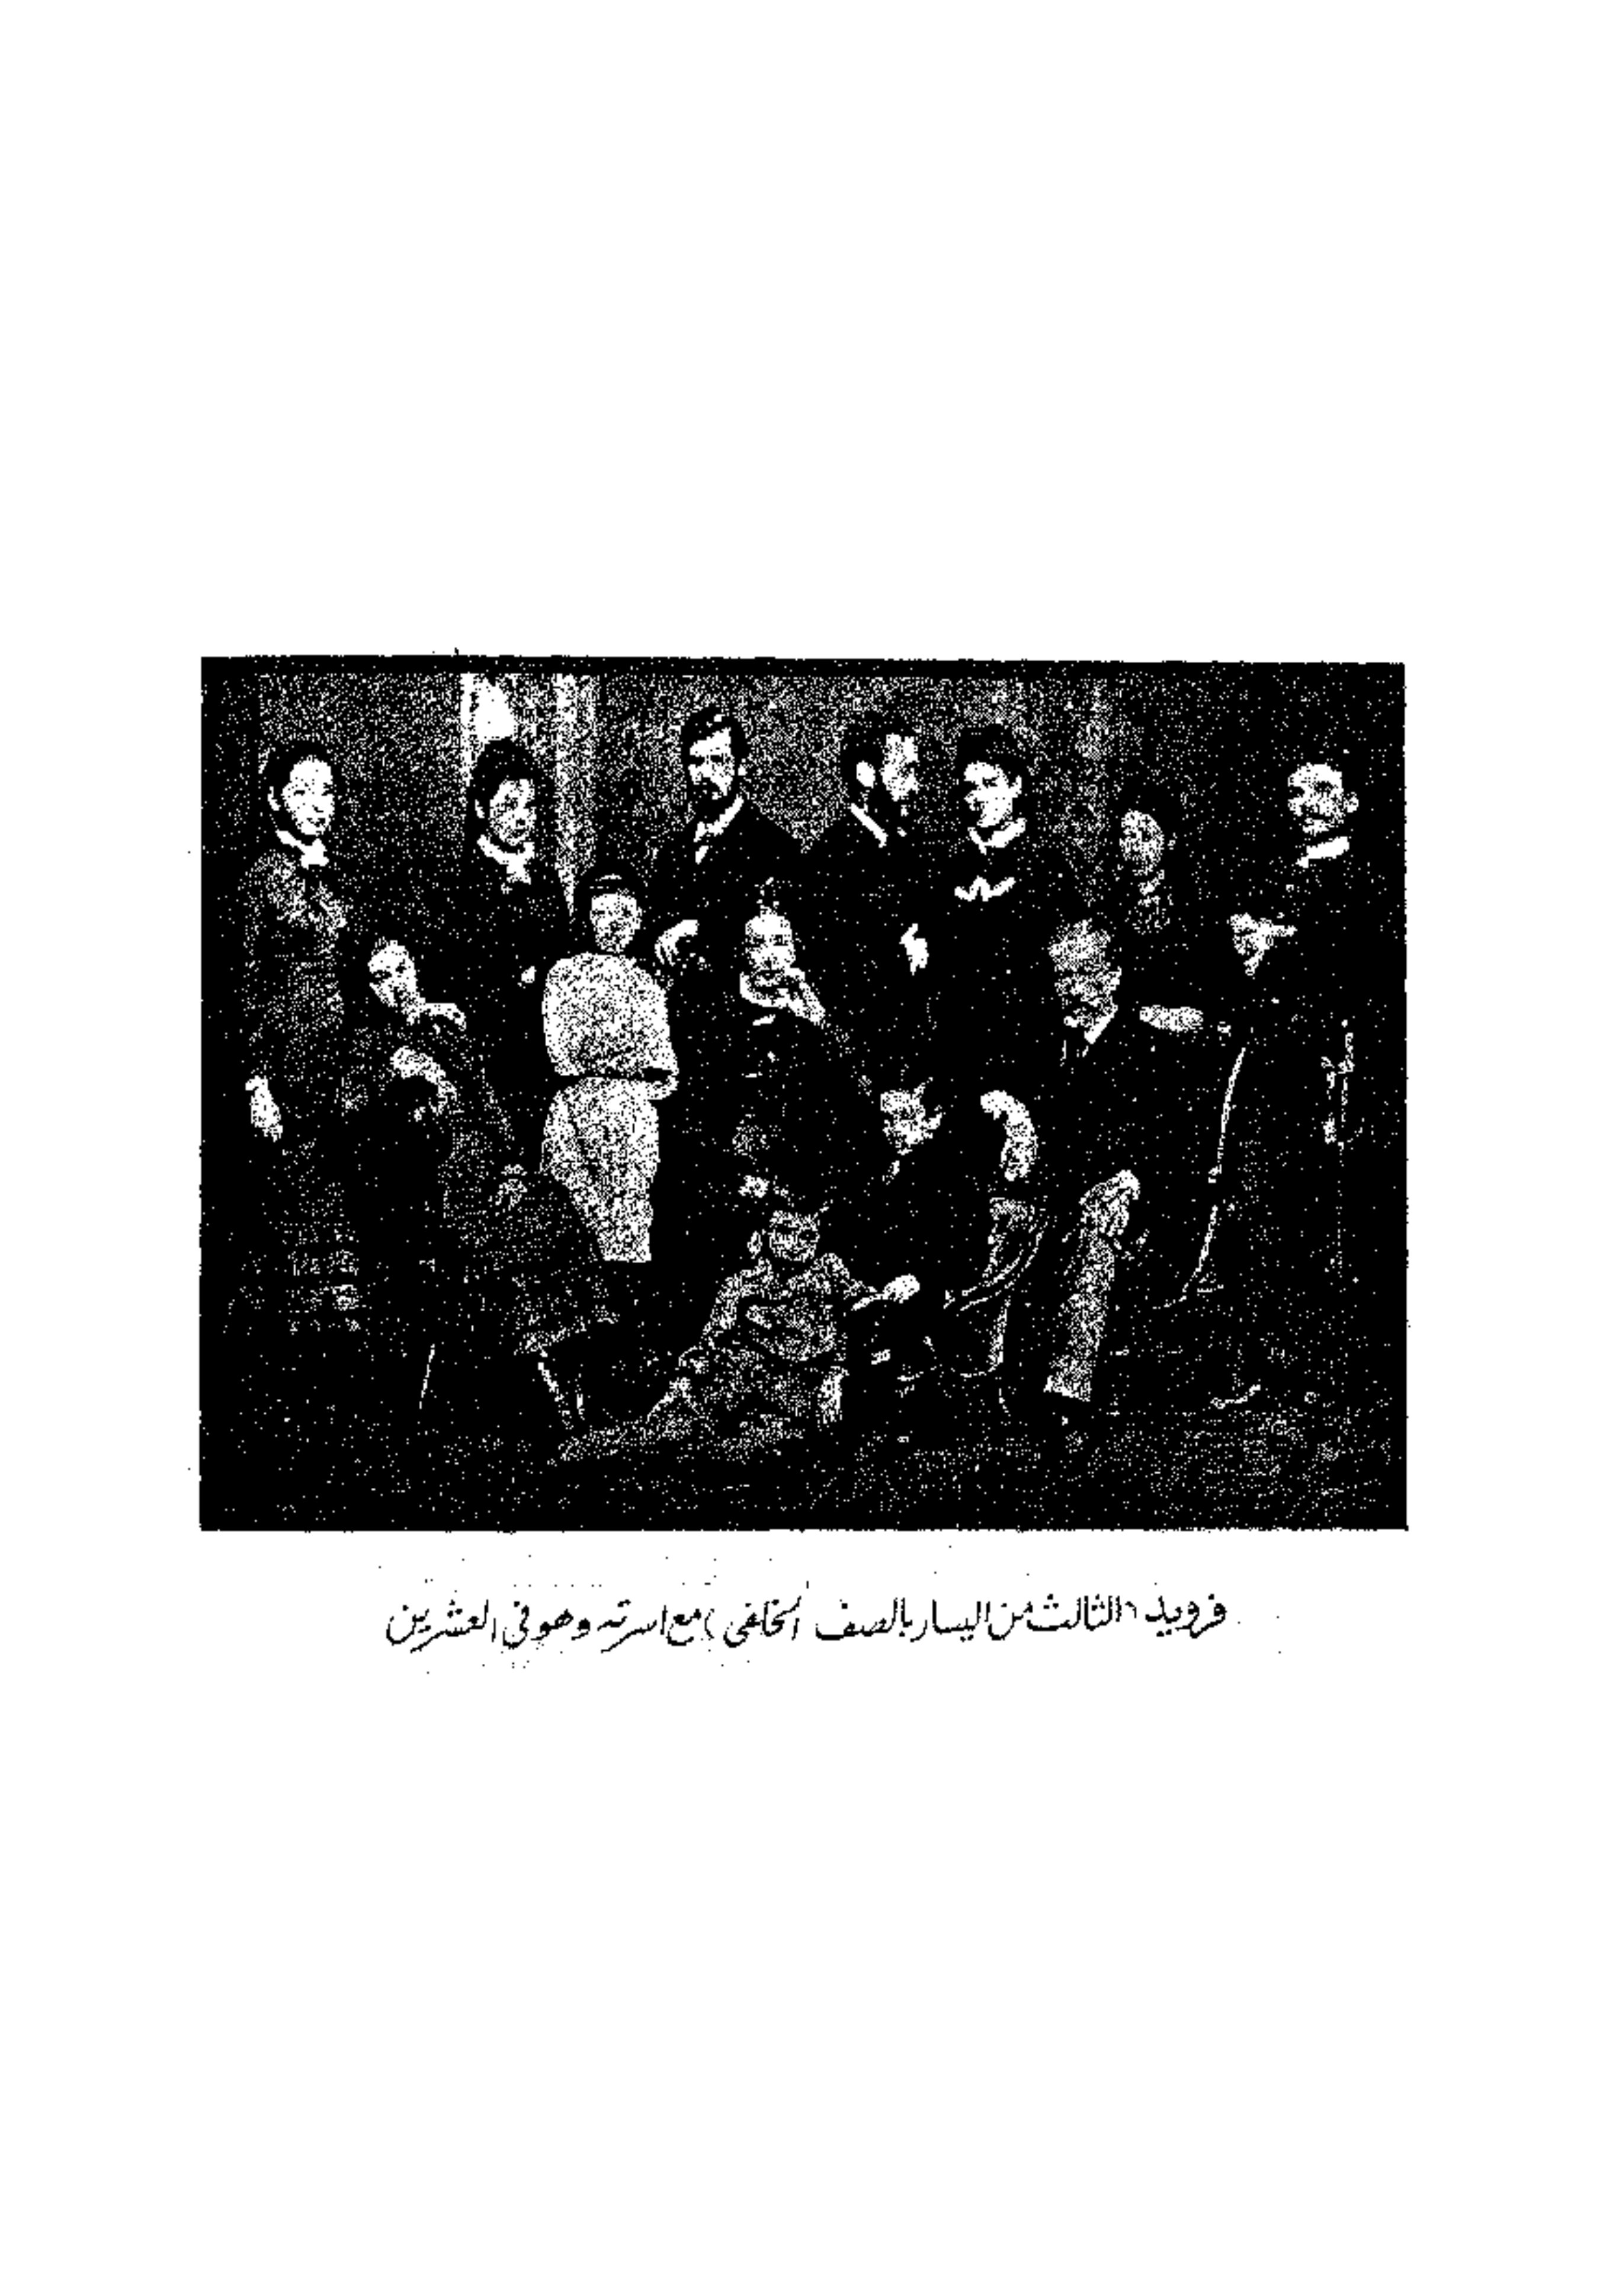 فرويد (الثالث من اليسار بالصف الخلفي) مع اسرته وهو في العشرين